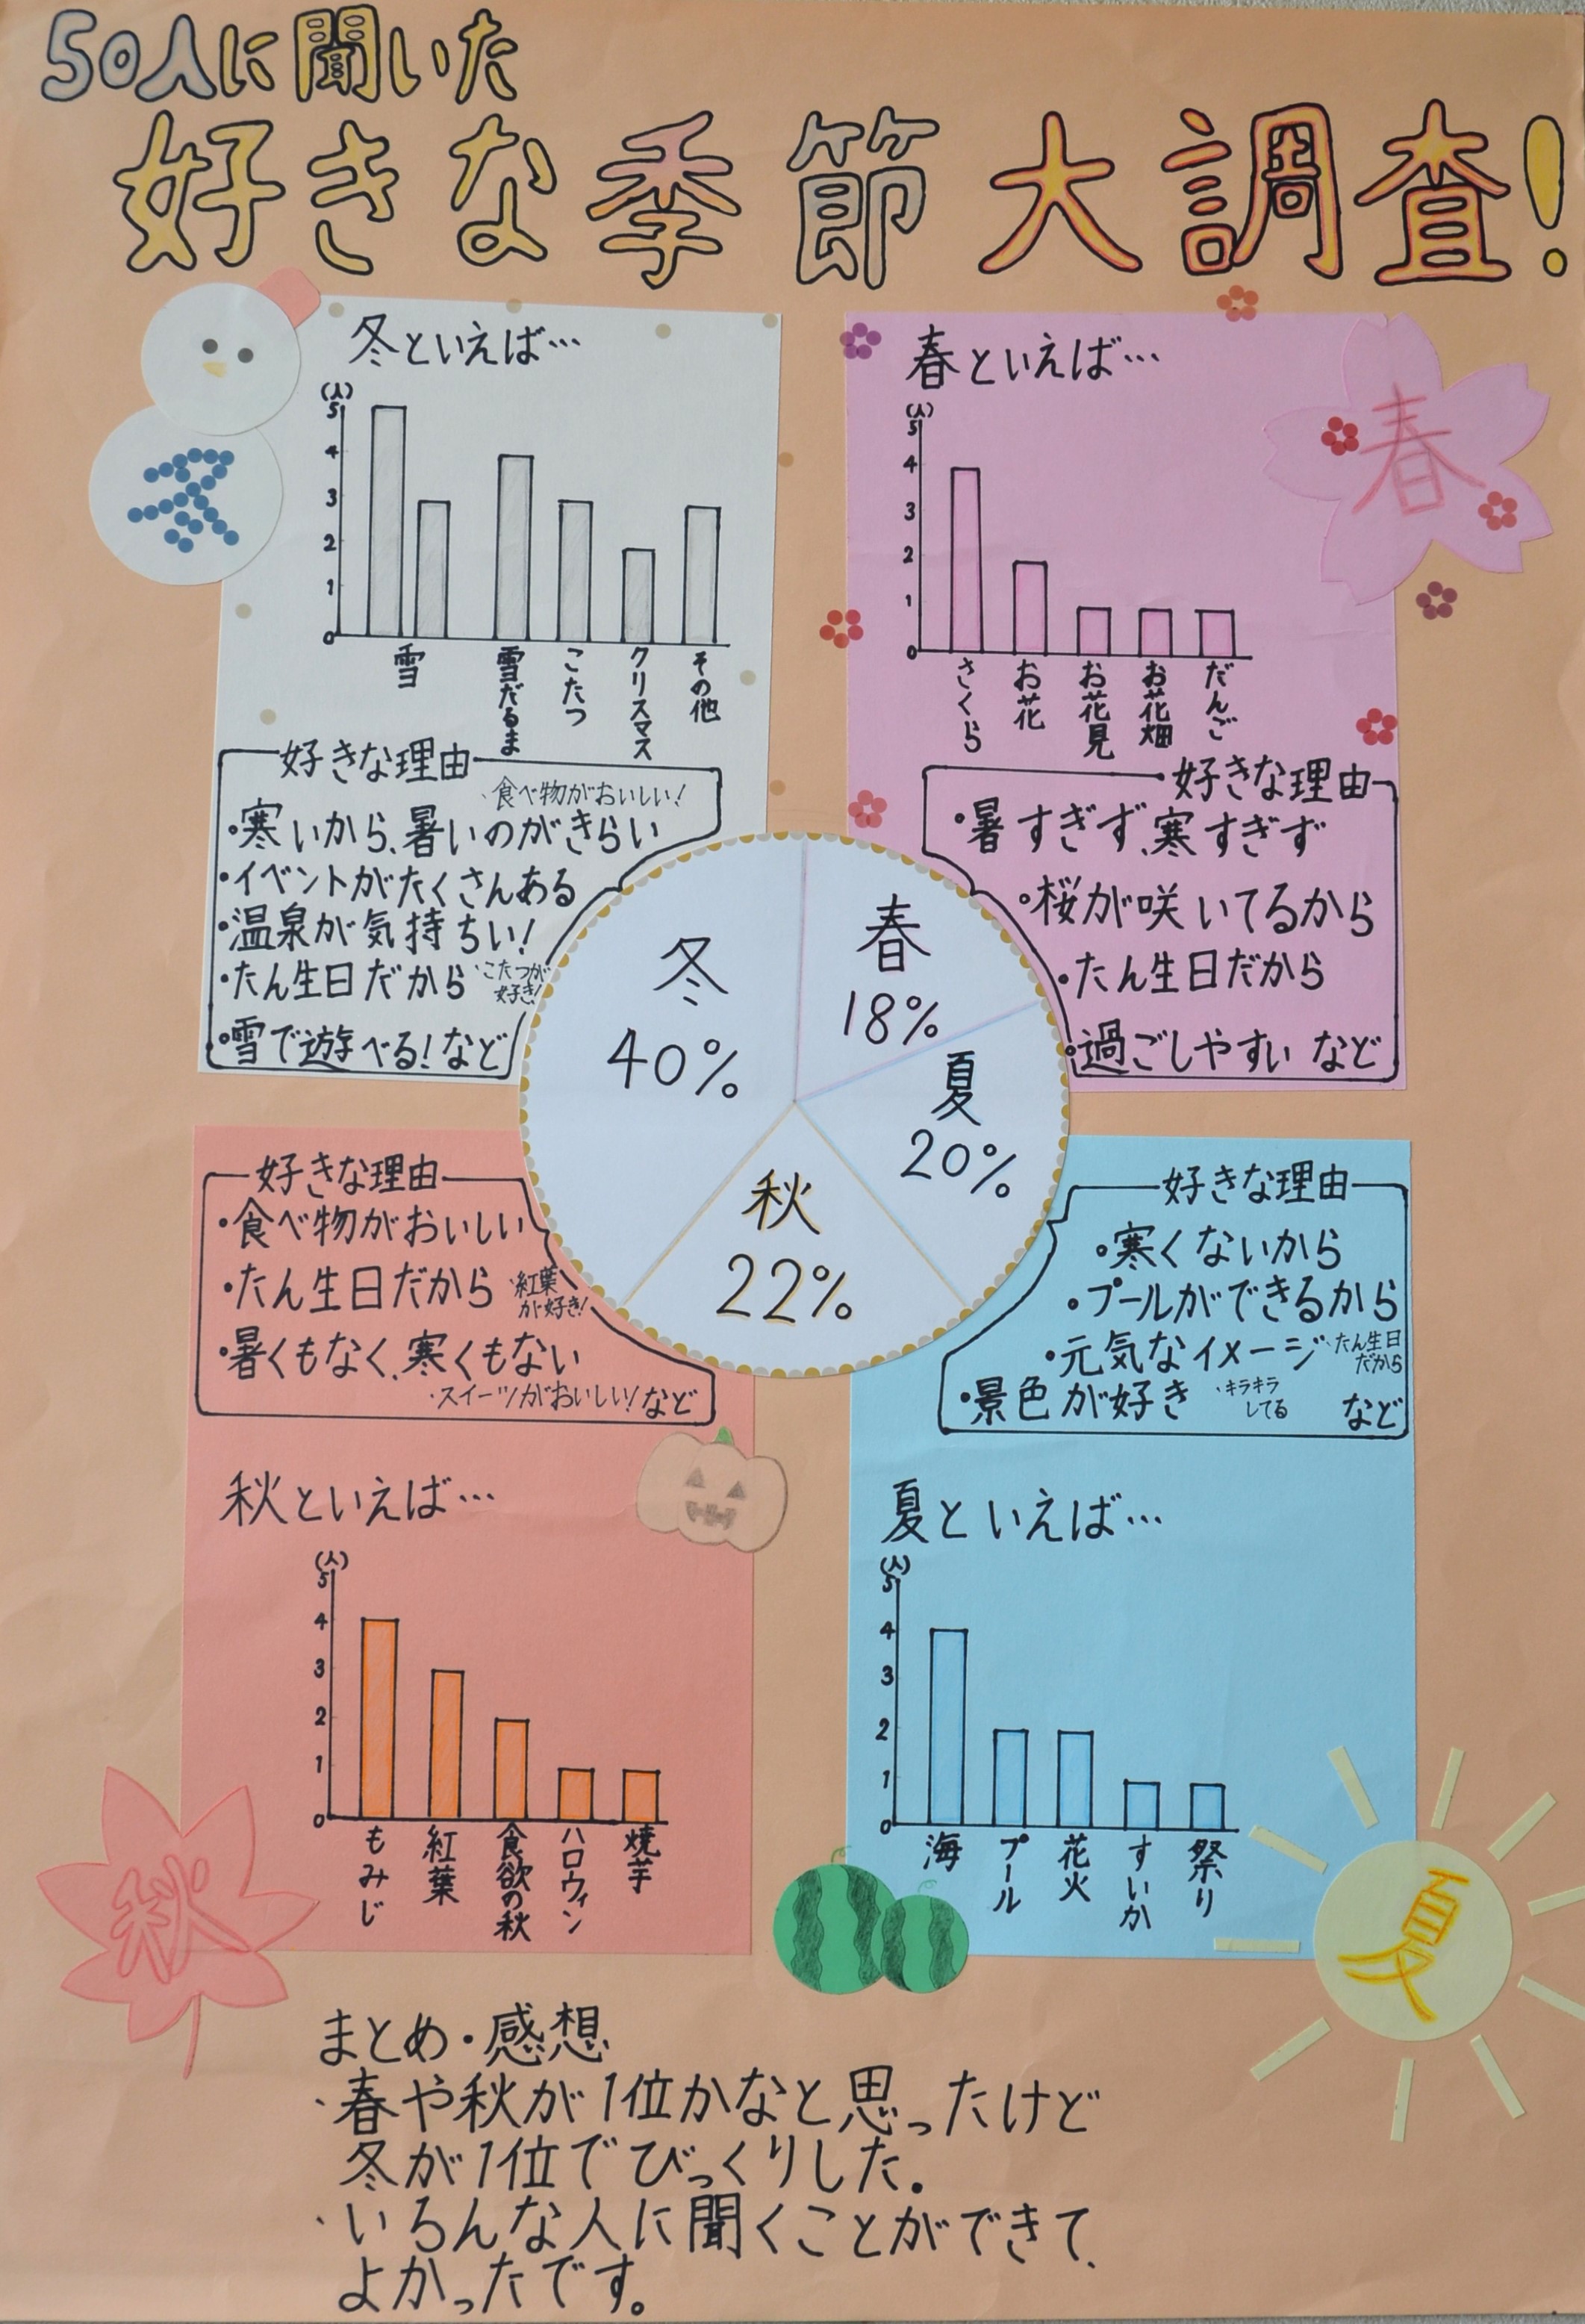 50人に聞いた
好きな季節大調査!
冬といえば…
(人)
5
4
3
2
1
0
雪
雪だるま
こたつ
クリスマス
その他
好きな理由
・食べ物がおいしい!
・寒いから、暑いのがきらい
・イベントがたくさんある
・温泉が気持ちい!
・たん生日だから
・こたつが
好き!
・雪で遊べる!など
冬
春といえば…
(人)
5
4
3
2
1
0
さくら
お花
お花見
お花畑
だんご
好きな理由
・暑すぎず、寒すぎず
・桜が咲いてるから
・たん生日だから
・過ごしやすい など
春
冬
40%
春
18%
夏
20%
秋
22%
好きな理由
・食べ物がおいしい
・たん生日だから
・紅葉
が好き!
・暑くもなく、寒くもない
・スイーツがおいしい!など
秋といえば…
(人)
5
4
3
2
1
0
もみじ
紅葉
食欲の秋
ハロウィン
焼芋
秋
好きな理由
・寒くないから
・プールができるから
・元気なイメージ
・たん生日
だから
・景色が好き
・キラキラ
してる
など
夏といえば…
(人)
5
4
3
2
1
0
海
プール
花火
すいか
祭り
夏
まとめ・感想
・春や秋が1位かなと思ったけど
冬が1位でびっくりした。
・いろんな人に聞くことができて、
よかったです。